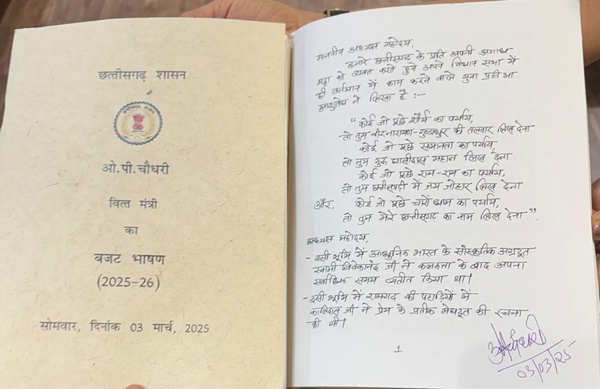 छत्तीसगढ़ शासन
ओ.पी.चौधरी
वित्त मंत्री
का
बजट भाषण
(2025-26)
सोमवार, दिनांक 03 मार्च, 2025
माननीय अध्यक्ष महोदय,
हमारे छत्तीसगढ़ के प्रति अपनी अगाध
श्रद्धा को व्यक्त करते हुये अपने विधान सभा में
ही वर्तमान में काम करने वाले युवा प्रतिभा
ने लिखा है :-
"कोई जो पूछे शौर्य का पर्याय,
तो तुम वीरनारायण-गुण्डाधुर की तलवार लिख देना
कोई जो पूछे समानता का पर्याय,
तो तुम गुरु घासीदास महान लिख देना
कोई जो पूछे राम-राम का पर्याय,
तो तुम छत्तीसगढ़ी में जय जोहार लिख देना
और, कोई जो पूछे चारों धाम का पर्याय,
तो तुम मेरे छत्तीसगढ़ का नाम लिख देना"।
अध्यक्ष महोदय,
- इसी भूमि में आधुनिक भारत के सांस्कृतिक अग्रदूत
स्वामी विवेकानंद जी ने कलकत्ता के बाद अपना
सर्वाधिक समय व्यतीत किया था।
- इसी भूमि में रामगढ़ की पहाड़ियों में
कालिदास जी ने प्रेम के प्रतीक मेघदूत की रचना
की थी।
1
03/03/25